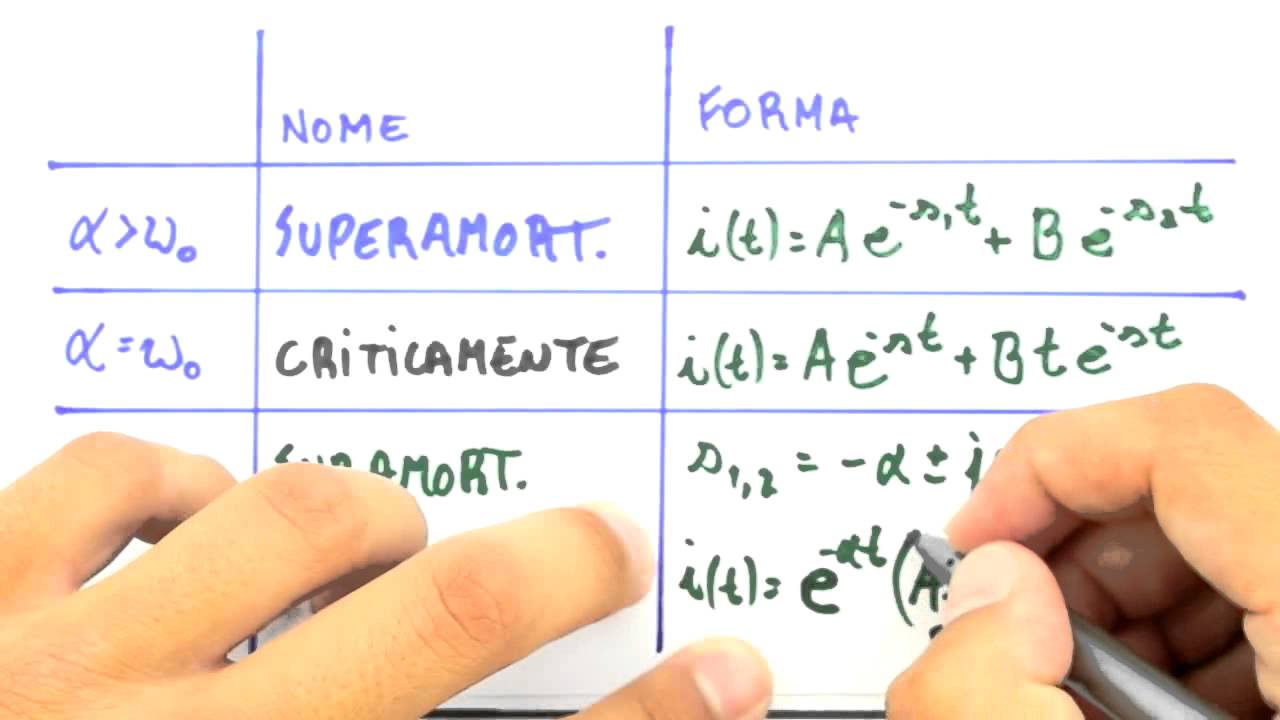 NOME FORMA
α > ω₀ SUPERAMORT. i(t) = A e^{-s₁t} + B e^{-s₂t}
α = ω₀ CRITICAMENTE i(t) = A e^{-st} + B t e^{-st}
AMORT. s₁,₂ = -α ± j
i(t) = e^{-αt} (A